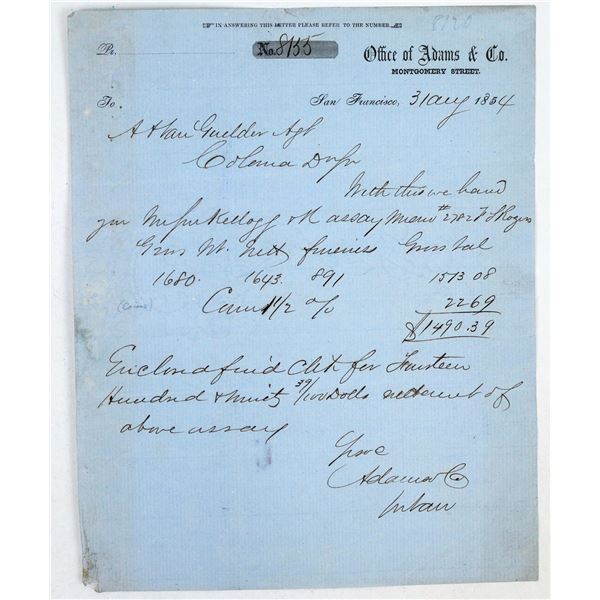 IN ANSWERING THIS LETTER PLEASE REFER TO THE NUMBER
8120
Pr. No. 8135 Office of Adams & Co.
MONTGOMERY STREET.
To San Francisco, 31 Aug 1854
A H Van Guelder Agt
Coloma
With this we hand
you Kellogg & H assay #2782
Gross Wt. Nett fineness Gross Val
1680. 1643. 891 1513 08
(Coins) Coin 1 1/2 % 2269
$1490.39
Enclosed find Ck for Fourteen
Hundred & Ninety 39/100 Dolls nett amt of
above assay
Yrs &c
Adams & Co